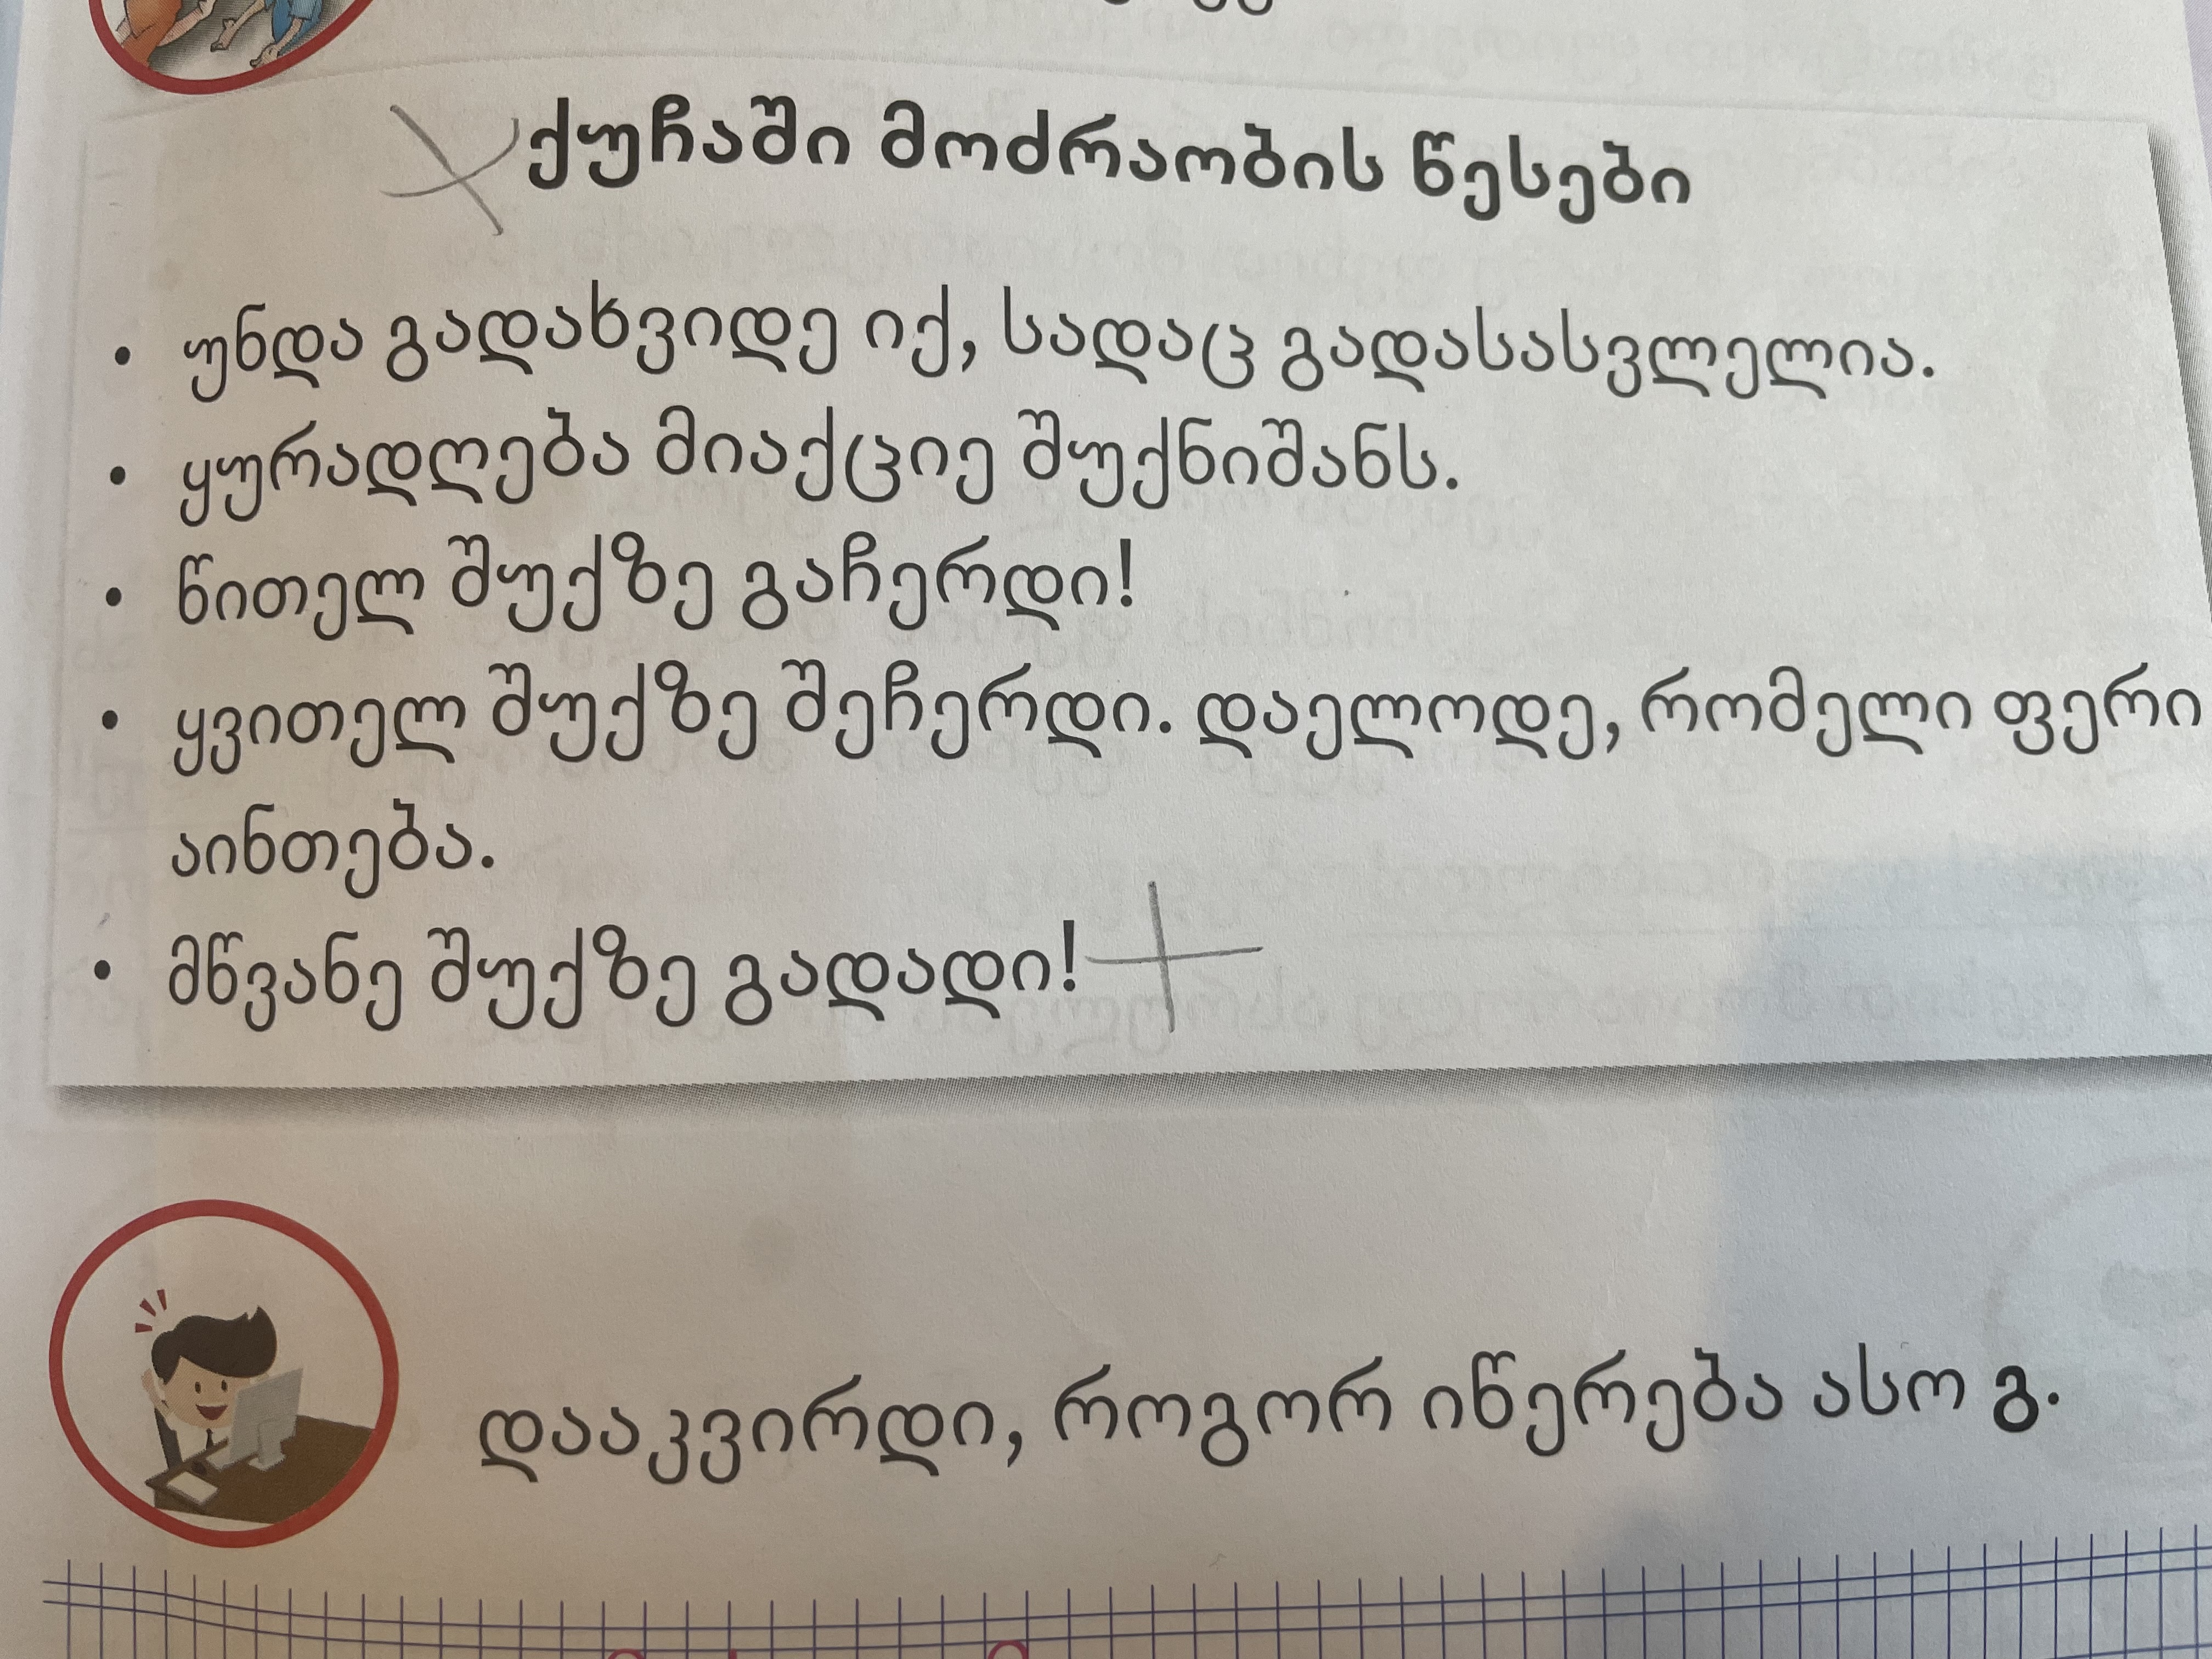 ქუჩაში მოძრაობის წესები
• უნდა გადახვიდე იქ, სადაც გადასასვლელია.
• ყურადღება მიაქციე შუქნიშანს.
• წითელ შუქზე გაჩერდი!
• ყვითელ შუქზე შეჩერდი. დაელოდე, რომელი ფერი
აინთება.
• მწვანე შუქზე გადადი!
დააკვირდი, როგორ იწერება ასო გ.